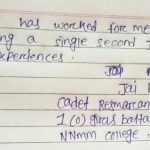 has worked for me
ng a single second I
experiences.
Jai
Jai H
Cadet Resmarcan
1 (o) Girls batta
NNmm college